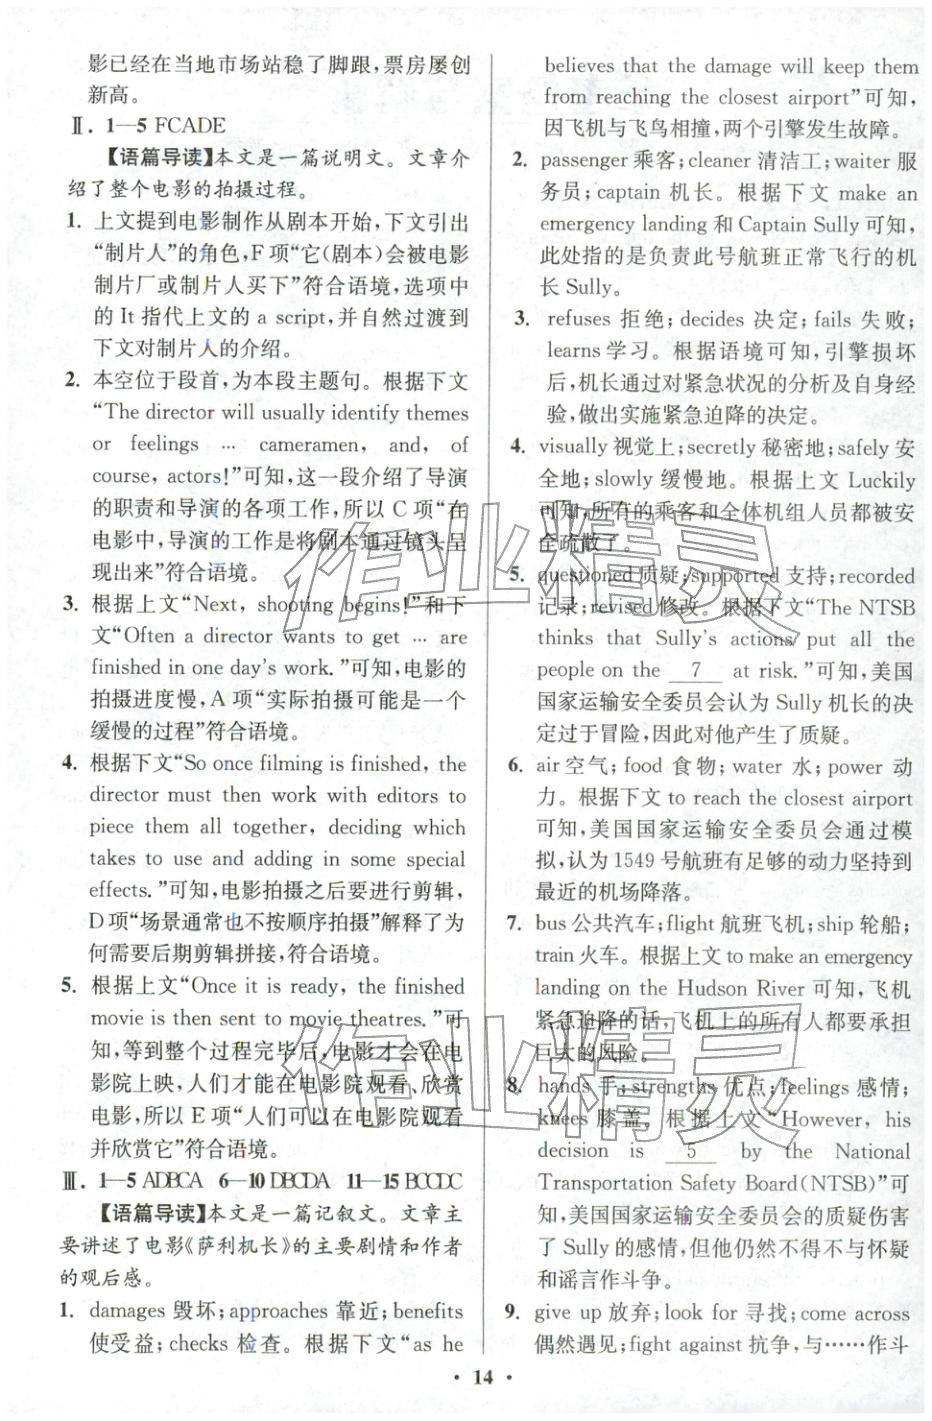 影已经在当地市场站稳了脚跟,票房屡创
新高。
Ⅱ. 1—5 FCADE
【语篇导读】本文是一篇说明文。文章介
绍了整个电影的拍摄过程。
1. 上文提到电影制作从剧本开始,下文引出
“制片人”的角色,F项“它(剧本)会被电影
制片厂或制片人买下”符合语境,选项中
的 It 指代上文的 a script,并自然过渡到
下文对制片人的介绍。
2. 本空位于段首,为本段主题句。根据下文
“The director will usually identify themes
or feelings … cameramen, and, of
course, actors!”可知,这一段介绍了导演
的职责和导演的各项工作,所以 C 项“在
电影中,导演的工作是将剧本通过镜头呈
现出来”符合语境。
3. 根据上文“Next, shooting begins!”和下
文“Often a director wants to get … are
finished in one day’s work.”可知,电影的
拍摄进度慢,A 项“实际拍摄可能是一个
缓慢的过程”符合语境。
4. 根据下文“So once filming is finished, the
director must then work with editors to
piece them all together, deciding which
takes to use and adding in some special
effects.”可知,电影拍摄之后要进行剪辑,
D项“场景通常也不按顺序拍摄”解释了为
何需要后期剪辑拼接,符合语境。
5. 根据上文“Once it is ready, the finished
movie is then sent to movie theatres.”可
知,等到整个过程完毕后,电影才会在电
影院上映,人们才能在电影院观看、欣赏
电影,所以 E 项“人们可以在电影院观看
并欣赏它”符合语境。
Ⅲ. 1—5 ADBCA 6—10 DBCDA 11—15 BCCDC
【语篇导读】本文是一篇记叙文。文章主
要讲述了电影《萨利机长》的主要剧情和作者
的观后感。
1. damages 毁坏;approaches 靠近;benefits
使受益;checks 检查。根据下文“as he
believes that the damage will keep them
from reaching the closest airport”可知,
因飞机与飞鸟相撞,两个引擎发生故障。
2. passenger 乘客;cleaner 清洁工;waiter 服
务员;captain 机长。根据下文 make an
emergency landing 和 Captain Sully 可知,
此处指的是负责此号航班正常飞行的机
长 Sully。
3. refuses 拒绝;decides 决定;fails 失败;
learns 学习。根据语境可知,引擎损坏
后,机长通过对紧急状况的分析及自身经
验,做出实施紧急迫降的决定。
4. visually 视觉上;secretly 秘密地;safely 安
全地;slowly 缓慢地。根据上文 Luckily
可知,所有的乘客和全体机组人员都被安
全疏散了。
5. questioned 质疑;supported 支持;recorded
记录;revised 修改。根据下文“The NTSB
thinks that Sully’s actions put all the
people on the 7 at risk.”可知,美国
国家运输安全委员会认为 Sully 机长的决
定过于冒险,因此对他产生了质疑。
6. air 空气;food 食物;water 水;power 动
力。根据下文 to reach the closest airport
可知,美国国家运输安全委员会通过模
拟,认为 1549 号航班有足够的动力坚持到
最近的机场降落。
7. bus 公共汽车;flight 航班飞机;ship 轮船;
train 火车。根据上文 to make an emergency
landing on the Hudson River 可知,飞机
紧急迫降的话,飞机上的所有人都要承担
巨大的风险。
8. hands 手;strengths 优点;feelings 感情;
knees 膝盖。根据上文“However, his
decision is 5 by the National
Transportation Safety Board(NTSB)”可
知,美国国家运输安全委员会的质疑伤害
了 Sully 的感情,但他仍然不得不与怀疑
和谣言作斗争。
9. give up 放弃;look for 寻找;come across
偶然遇见;fight against 抗争,与……作斗
• 14 •
作业精灵
作业精灵